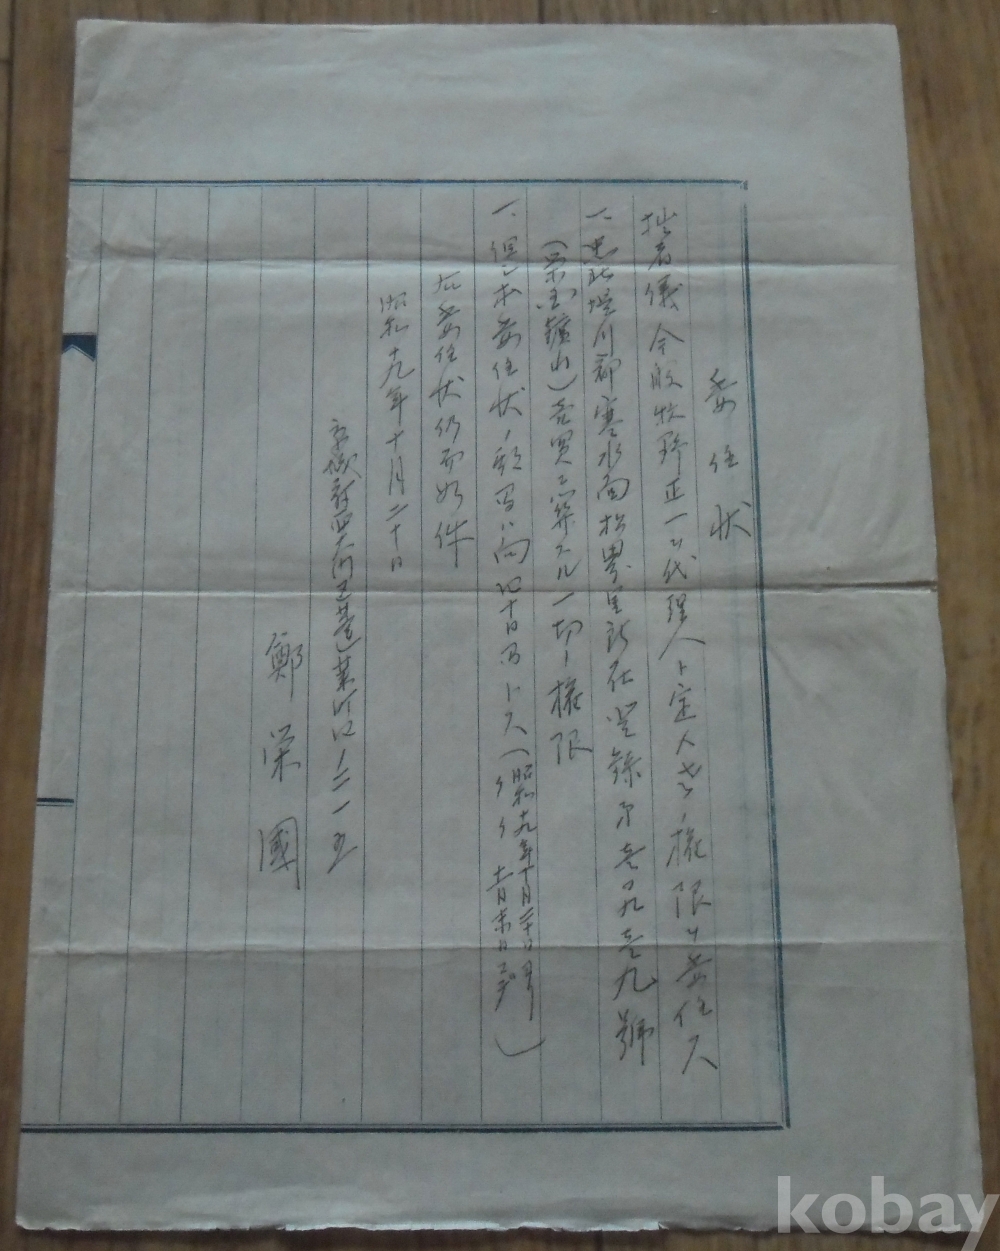 委任状
拙者儀今般牧野正一ヲ代理人ト定メ左ノ権限ヲ委任ス
一、忠北堤川郡寒水面松界里所在登録第壱九壱九號
(栄国鑛山)売買ニ関スル一切ノ権限
一、但シ本委任状ノ期間ハ向四十日間トス(昭和十九年十月二十日ヨリ 〃 〃 十一月末日マデ)
右委任状仍而如件
昭和十九年十月二十日
京城府西大門区蓬莱町四ノ二一五
鄭栄國
kobay